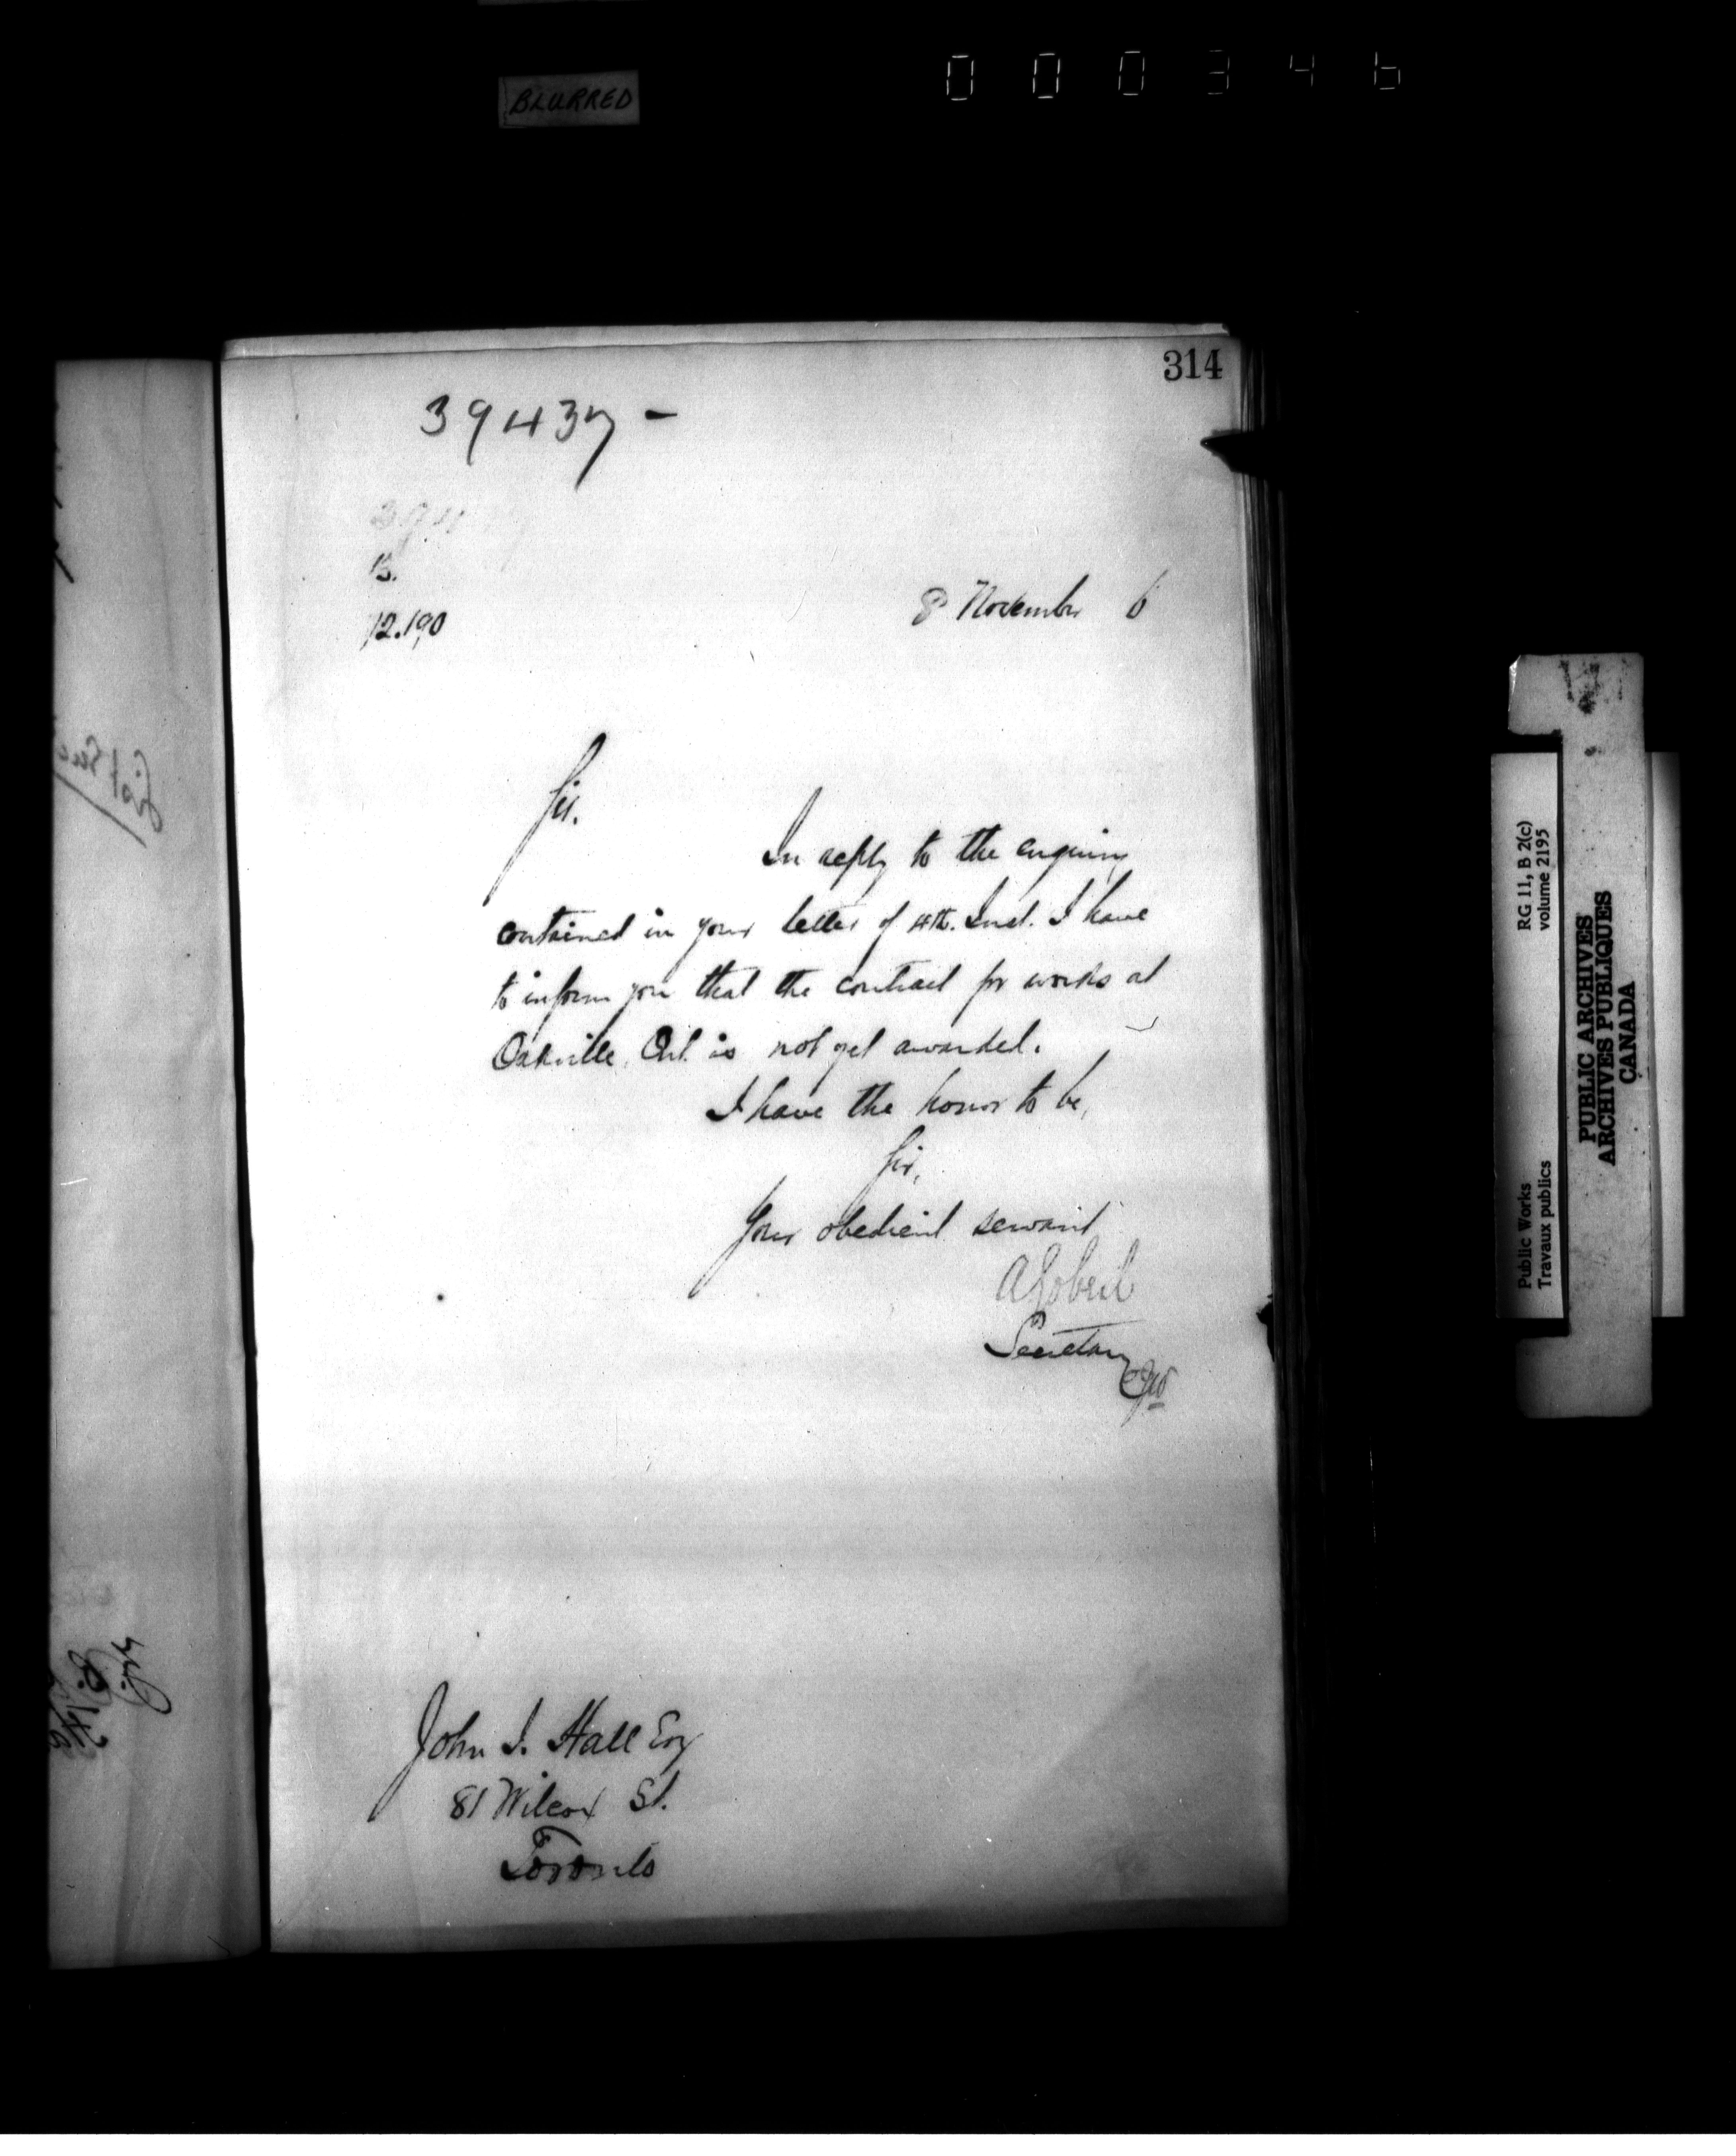 BLURRED
000346
314
39437-
B.
72.190
8 November 6
Sir.
In reply to the enquiry
contained in your letter of 4th. Inst. I have
to inform you that the contract for works at
Oakville, Ont. is not yet awarded.
I have the honor to be,
Sir,
Your obedient servant
A Gobeil
Secretary
John I. Hall Esq
81 Wilcox St.
Toronto
RG 11, B 2(c)
volume 2195
Public Works
Travaux publics
PUBLIC ARCHIVES
ARCHIVES PUBLIQUES
CANADA